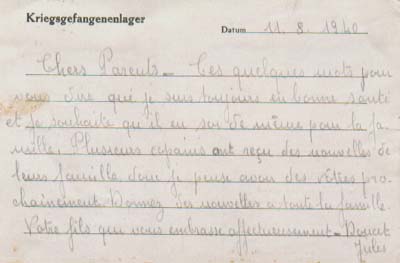 Kriegsgefangenenlager
Datum 11.8.1940
Chers Parents - Ces quelques mots pour
vous dire que je suis toujours en bonne santé
et je souhaite qu'il en soi de même pour la fa-
mille. Plusieurs copains ont reçu des nouvelles de
leurs famille donc je pense avoir des vôtres pro-
chainement Donnez des nouvelles a toute la famille.
Votre fils que vous embrasse affectueusement - Doucet
Jules